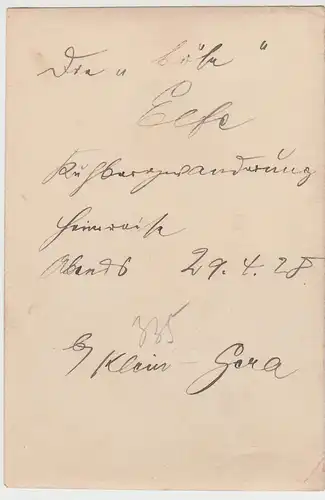 Die „böse“
Elfe
Kuhbergwanderung
Heimreise
Abends 29.4.28
335
b/ Klein-Gera